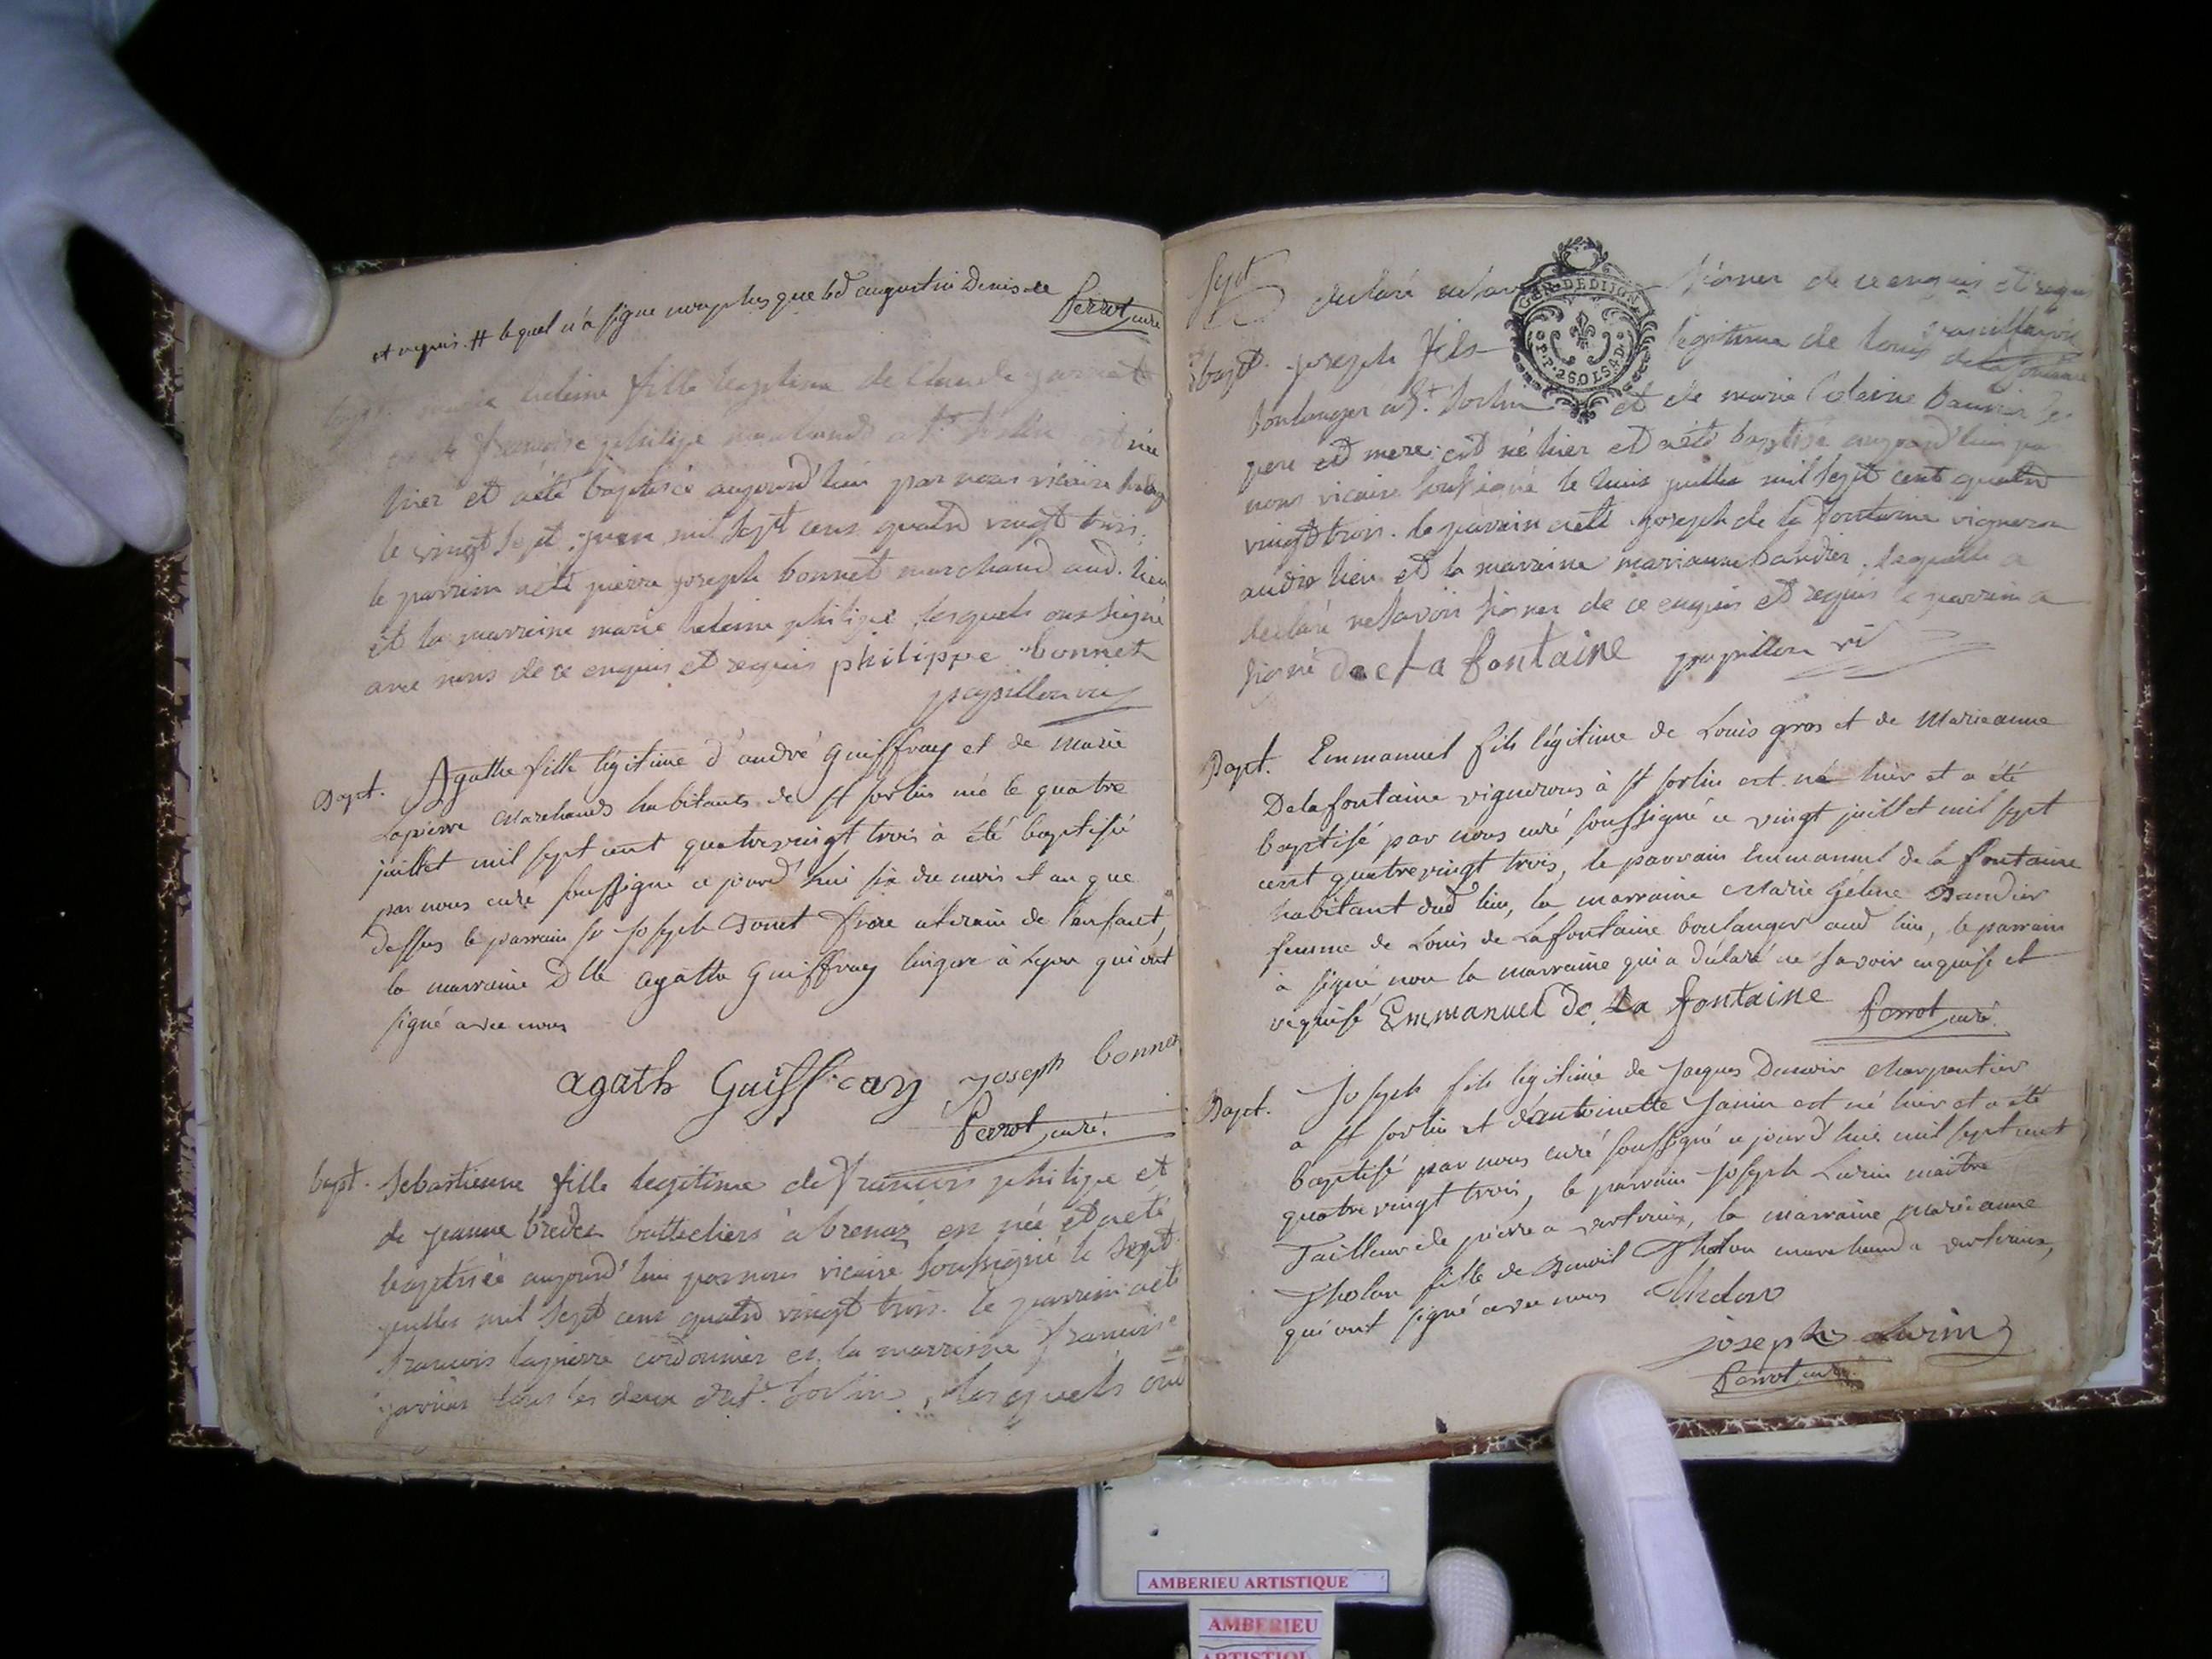 et requis. # lequel n'a signé non plus que led augustin Denis
Perrot curé
bapt. marie heleine fille legitime de Claude
et de françoise philipe marchands a St Sorlin est née
hier et a été baptisée aujourd'hui par nous vicaire
le vingt sept juin mil sept cens quatre vingt trois.
le parrein a été pierre joseph bonnet marchand aud. lieu
et la marreine marie heleine philipe, lesquels ont signé
avec nous de ce enquis et requis philippe bonnet
papillon vic
Bapt. Agathe fille légitime d'andré Guiffray et de Marie
Lapierre Marchands habitants de St Sorlin né le quatre
juillet mil sept cent quatrevingt trois à été baptisée
par nous curé soussigné ce jourd'hui six du mois et an que
dessus le parrain sr Joseph Bonet frere uterain de l'enfant,
la marraine Dlle agathe Guiffray lingere à Lyon qui ont
signé avec nous
agath Guiffray joseph bonnet
Perrot curé.
bapt. Sebastienne fille legitime de françois philipe et
de jeanne batteliers à brenaz est née et a été
baptisée aujourd'hui par nous vicaire soussigné le sept
juillet mil sept cens quatre vingt trois. le parrein a été
françois lapierre cordonnier et la marreine françoise
tous les deux de St. Sorlin, lesquels ont
Sept
declaré ne savoir signer de ce enquis et requis
papillon vic
bapt. joseph fils legitime de louis de la fontaine
boulanger a St. Sorlin et de marie heleine baudier ses
pere et mere est né hier et a été baptisé aujourd'hui par
nous vicaire soussigné le huit juillet mil sept cent quatre
vingt trois. le parrein a été joseph de la fontaine vigneron
audit lieu et la marreine marianne baudier. laquelle a
declaré ne savoir signer de ce enquis et requis le parrein a
signé de La fontaine papillon vi
Bapt. Emmanuel fils légitime de Louis gros et de Marieanne
Delafontaine vignerons à St Sorlin est né hier et a été
baptisé par nous curé soussigné ce vingt juillet mil sept
cent quatrevingt trois, le parrain Emmanuel de la fontaine
habitant dud lieu, la marraine Marie héline Baudier
femme de Louis de Lafontaine boulanger aud lieu, le parrain
à signé non la marraine qui a déclaré ne savoir enquise et
requise Emmanuel de La fontaine Perrot curé.
Bapt. Joseph fils légitime de Jacques charpentier
a St Sorlin et d'antoinette Janin est né hier et a été
baptisé par nous curé soussigné ce jourd'hui mil sept cent
quatre vingt trois, le parrain Joseph Lurin maitre
Tailleur de pierre a vertrieux, la marraine Marieanne
Tholon fille de Benoit Tholon marchand a vertrieux,
qui ont signé avec nous Tholon
joseph Lurin
Perrot curé.
GEN. DE DIJON
AMBERIEU ARTISTIQUE
AMBERIEU
ARTISTIQUE